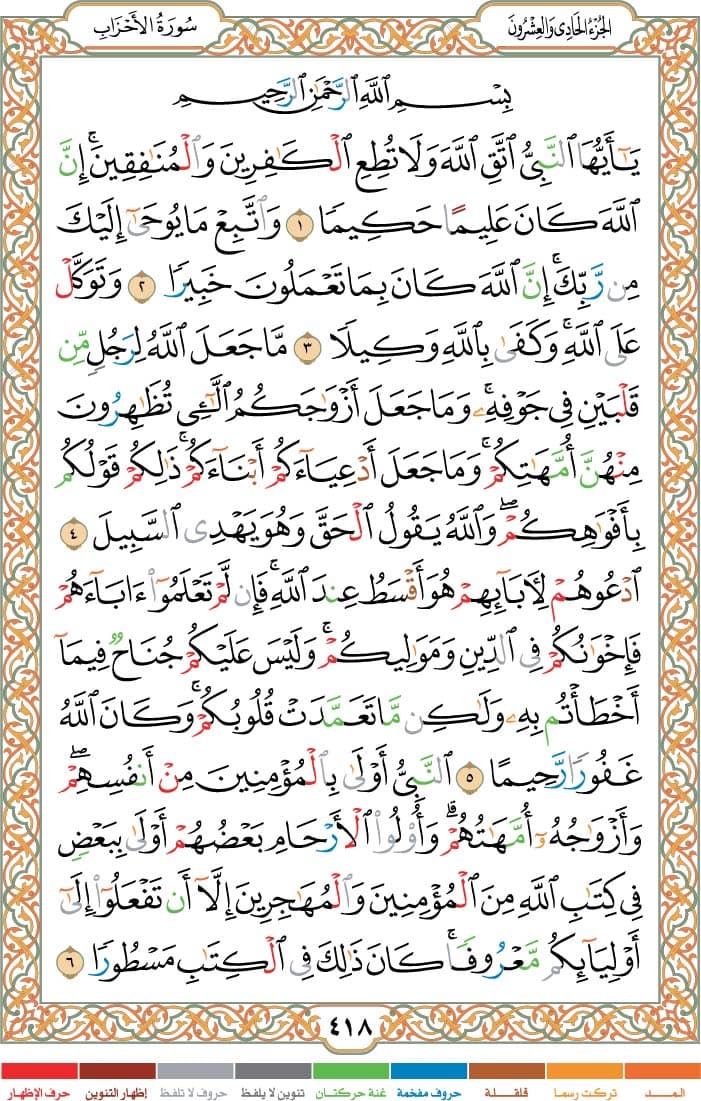 الجُزْءُ الحَادِي وَالعِشْرُونَ
سُورَةُ الأَحْزَابِ
بِسْمِ ٱللَّهِ ٱلرَّحْمَٰنِ ٱلرَّحِيمِ
يَٰٓأَيُّهَا ٱلنَّبِيُّ ٱتَّقِ ٱللَّهَ وَلَا تُطِعِ ٱلْكَٰفِرِينَ وَٱلْمُنَٰفِقِينَۚ إِنَّ
ٱللَّهَ كَانَ عَلِيمًا حَكِيمًا ١ وَٱتَّبِعْ مَا يُوحَىٰٓ إِلَيْكَ
مِن رَّبِّكَۚ إِنَّ ٱللَّهَ كَانَ بِمَا تَعْمَلُونَ خَبِيرًا ٢ وَتَوَكَّلْ
عَلَى ٱللَّهِۚ وَكَفَىٰ بِٱللَّهِ وَكِيلًا ٣ مَّا جَعَلَ ٱللَّهُ لِرَجُلٍ مِّن
قَلْبَيْنِ فِي جَوْفِهِۦۚ وَمَا جَعَلَ أَزْوَٰجَكُمُ ٱلَّٰٓـِٔي تُظَٰهِرُونَ
مِنْهُنَّ أُمَّهَٰتِكُمْۚ وَمَا جَعَلَ أَدْعِيَآءَكُمْ أَبْنَآءَكُمْۚ ذَٰلِكُمْ قَوْلُكُم
بِأَفْوَٰهِكُمْۖ وَٱللَّهُ يَقُولُ ٱلْحَقَّ وَهُوَ يَهْدِي ٱلسَّبِيلَ ٤
ٱدْعُوهُمْ لِأٓبَآئِهِمْ هُوَ أَقْسَطُ عِندَ ٱللَّهِۚ فَإِن لَّمْ تَعْلَمُوٓا۟ ءَابَآءَهُمْ
فَإِخْوَٰنُكُمْ فِي ٱلدِّينِ وَمَوَٰلِيكُمْۚ وَلَيْسَ عَلَيْكُمْ جُنَاحٌ فِيمَآ
أَخْطَأْتُم بِهِۦ وَلَٰكِن مَّا تَعَمَّدَتْ قُلُوبُكُمْۚ وَكَانَ ٱللَّهُ
غَفُورًا رَّحِيمًا ٥ ٱلنَّبِيُّ أَوْلَىٰ بِٱلْمُؤْمِنِينَ مِنْ أَنفُسِهِمْۖ
وَأَزْوَٰجُهُۥٓ أُمَّهَٰتُهُمْۗ وَأُو۟لُوا۟ ٱلْأَرْحَامِ بَعْضُهُمْ أَوْلَىٰ بِبَعْضٍ
فِي كِتَٰبِ ٱللَّهِ مِنَ ٱلْمُؤْمِنِينَ وَٱلْمُهَٰجِرِينَ إِلَّآ أَن تَفْعَلُوٓا۟ إِلَىٰٓ
أَوْلِيَآئِكُم مَّعْرُوفًاۚ كَانَ ذَٰلِكَ فِي ٱلْكِتَٰبِ مَسْطُورًا ٦
٤١٨
المـــد تركت رسما قلقـــلة حروف مفخمة غنة حركتان تنوين لا يلفظ حروف لا تلفظ إظهار التنوين حرف الإظهار